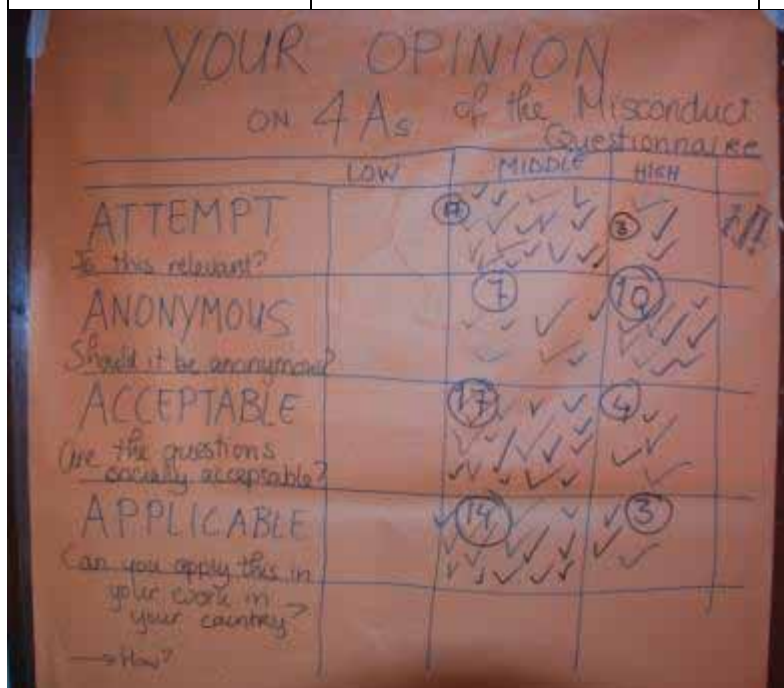 YOUR OPINION
ON 4 As of the Misconduct
Questionnaire
LOW MIDDLE HIGH
ATTEMPT 3
Is this relevant?
ANONYMOUS 7 10
Should it be anonymous?
ACCEPTABLE 17 4
Are the questions
socially acceptable?
APPLICABLE 14 3
Can you apply this in
your work in
your country?
→ How?